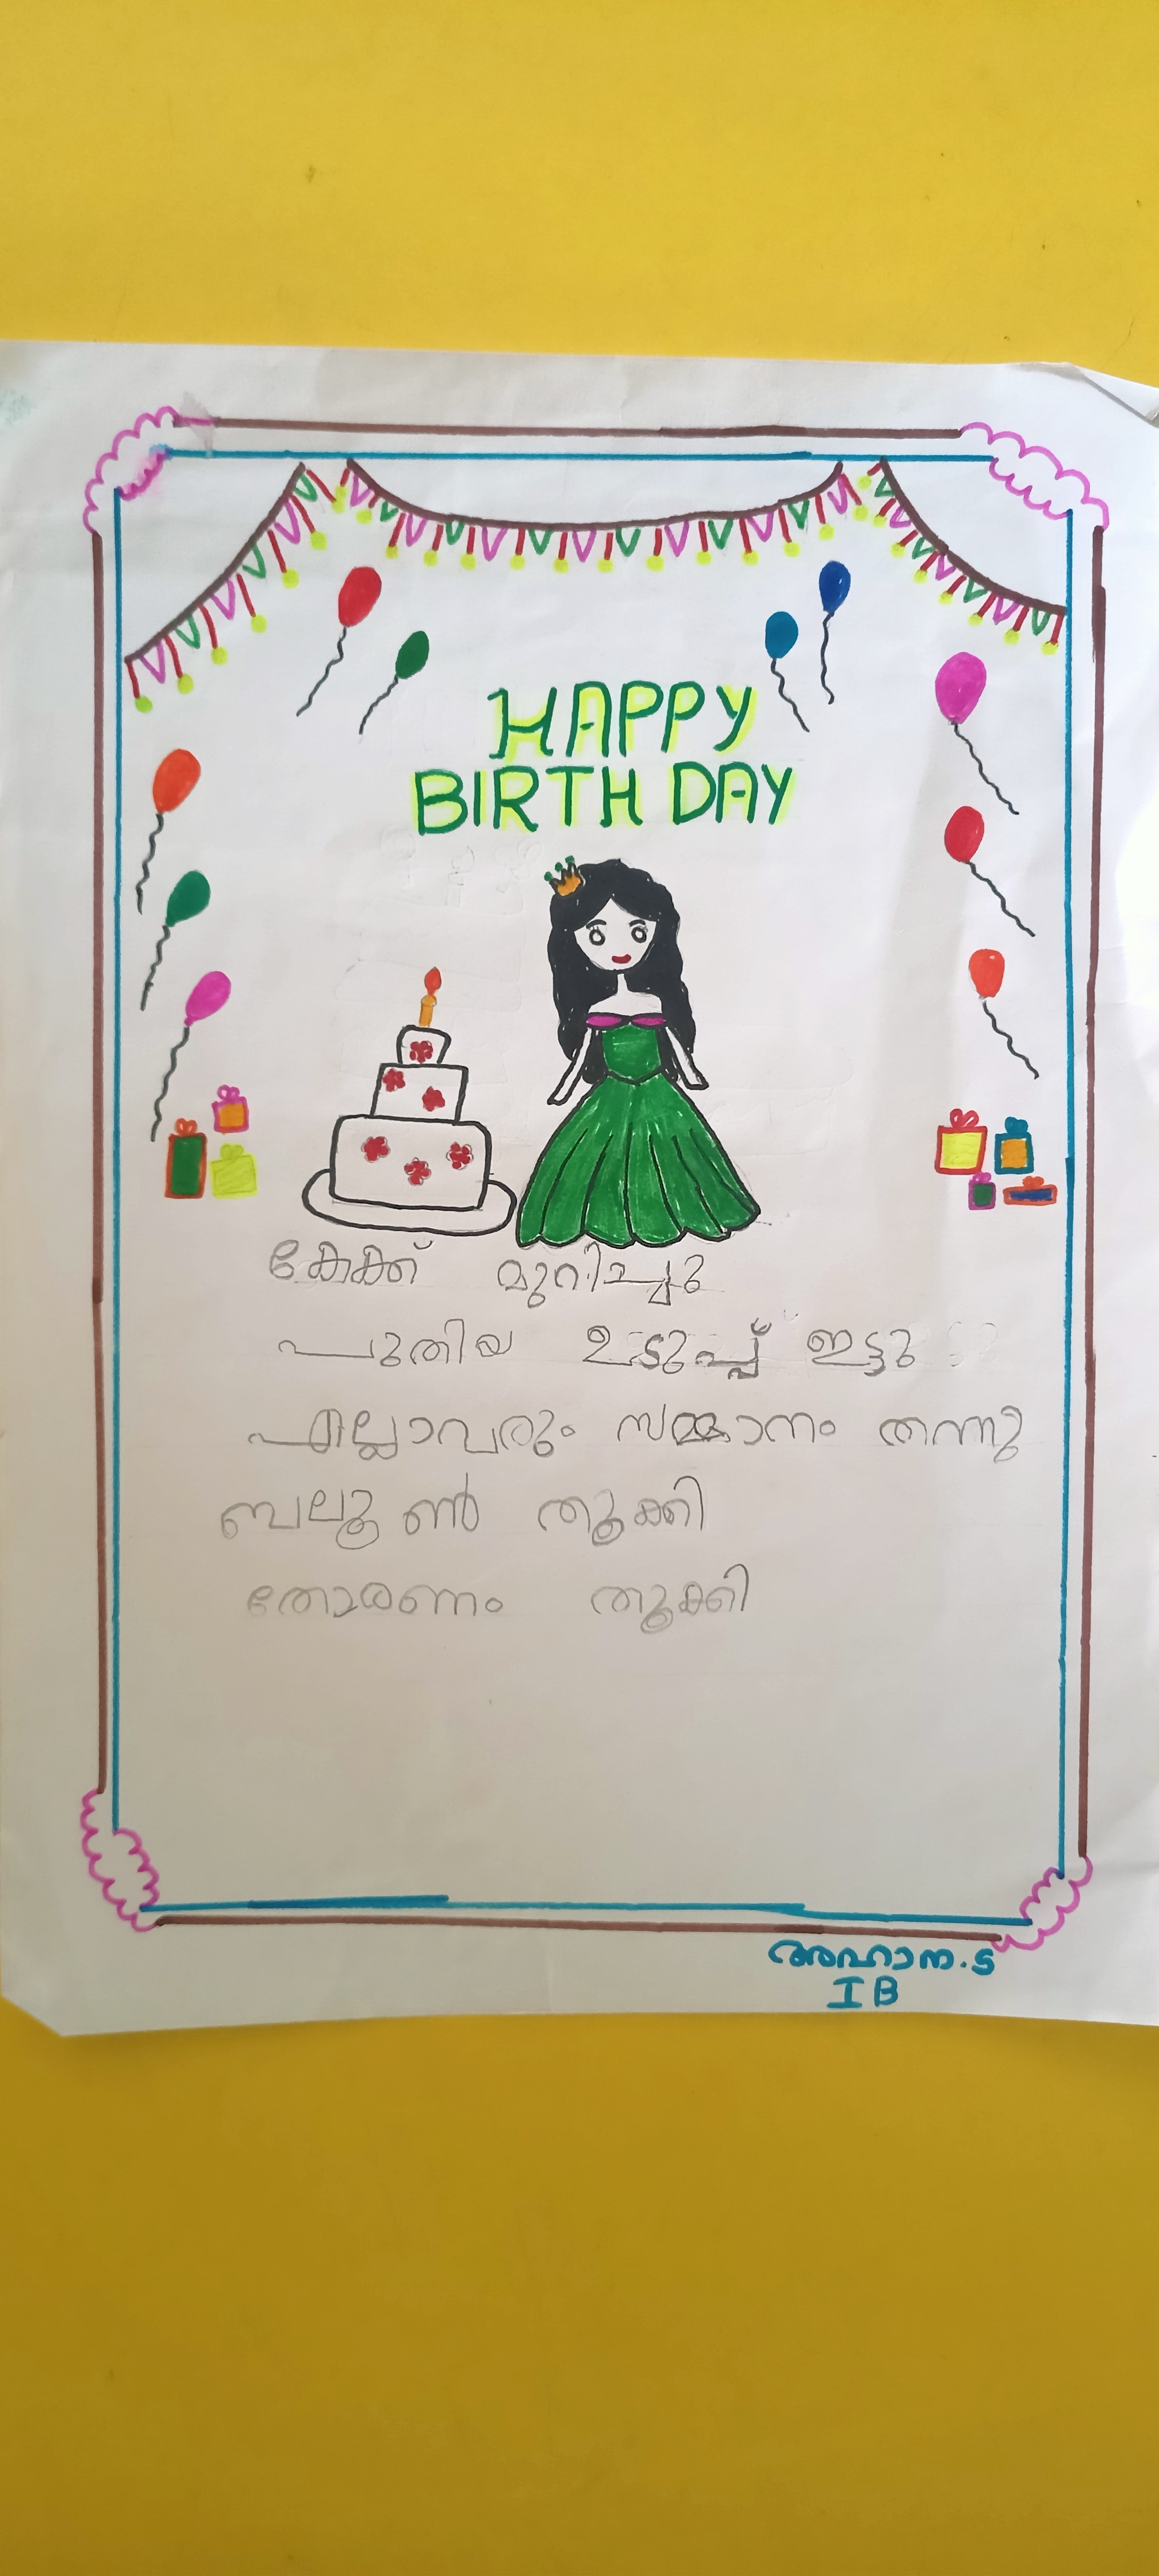 HAPPY
BIRTH DAY
കേക്ക് മുറിച്ചു
പുതിയ ഉടുപ്പ് ഇട്ടു
എല്ലാവരും സമ്മാനം തന്നു
ബലൂൺ തൂക്കി
തോരണം തൂക്കി
അഹാന.ട
I B